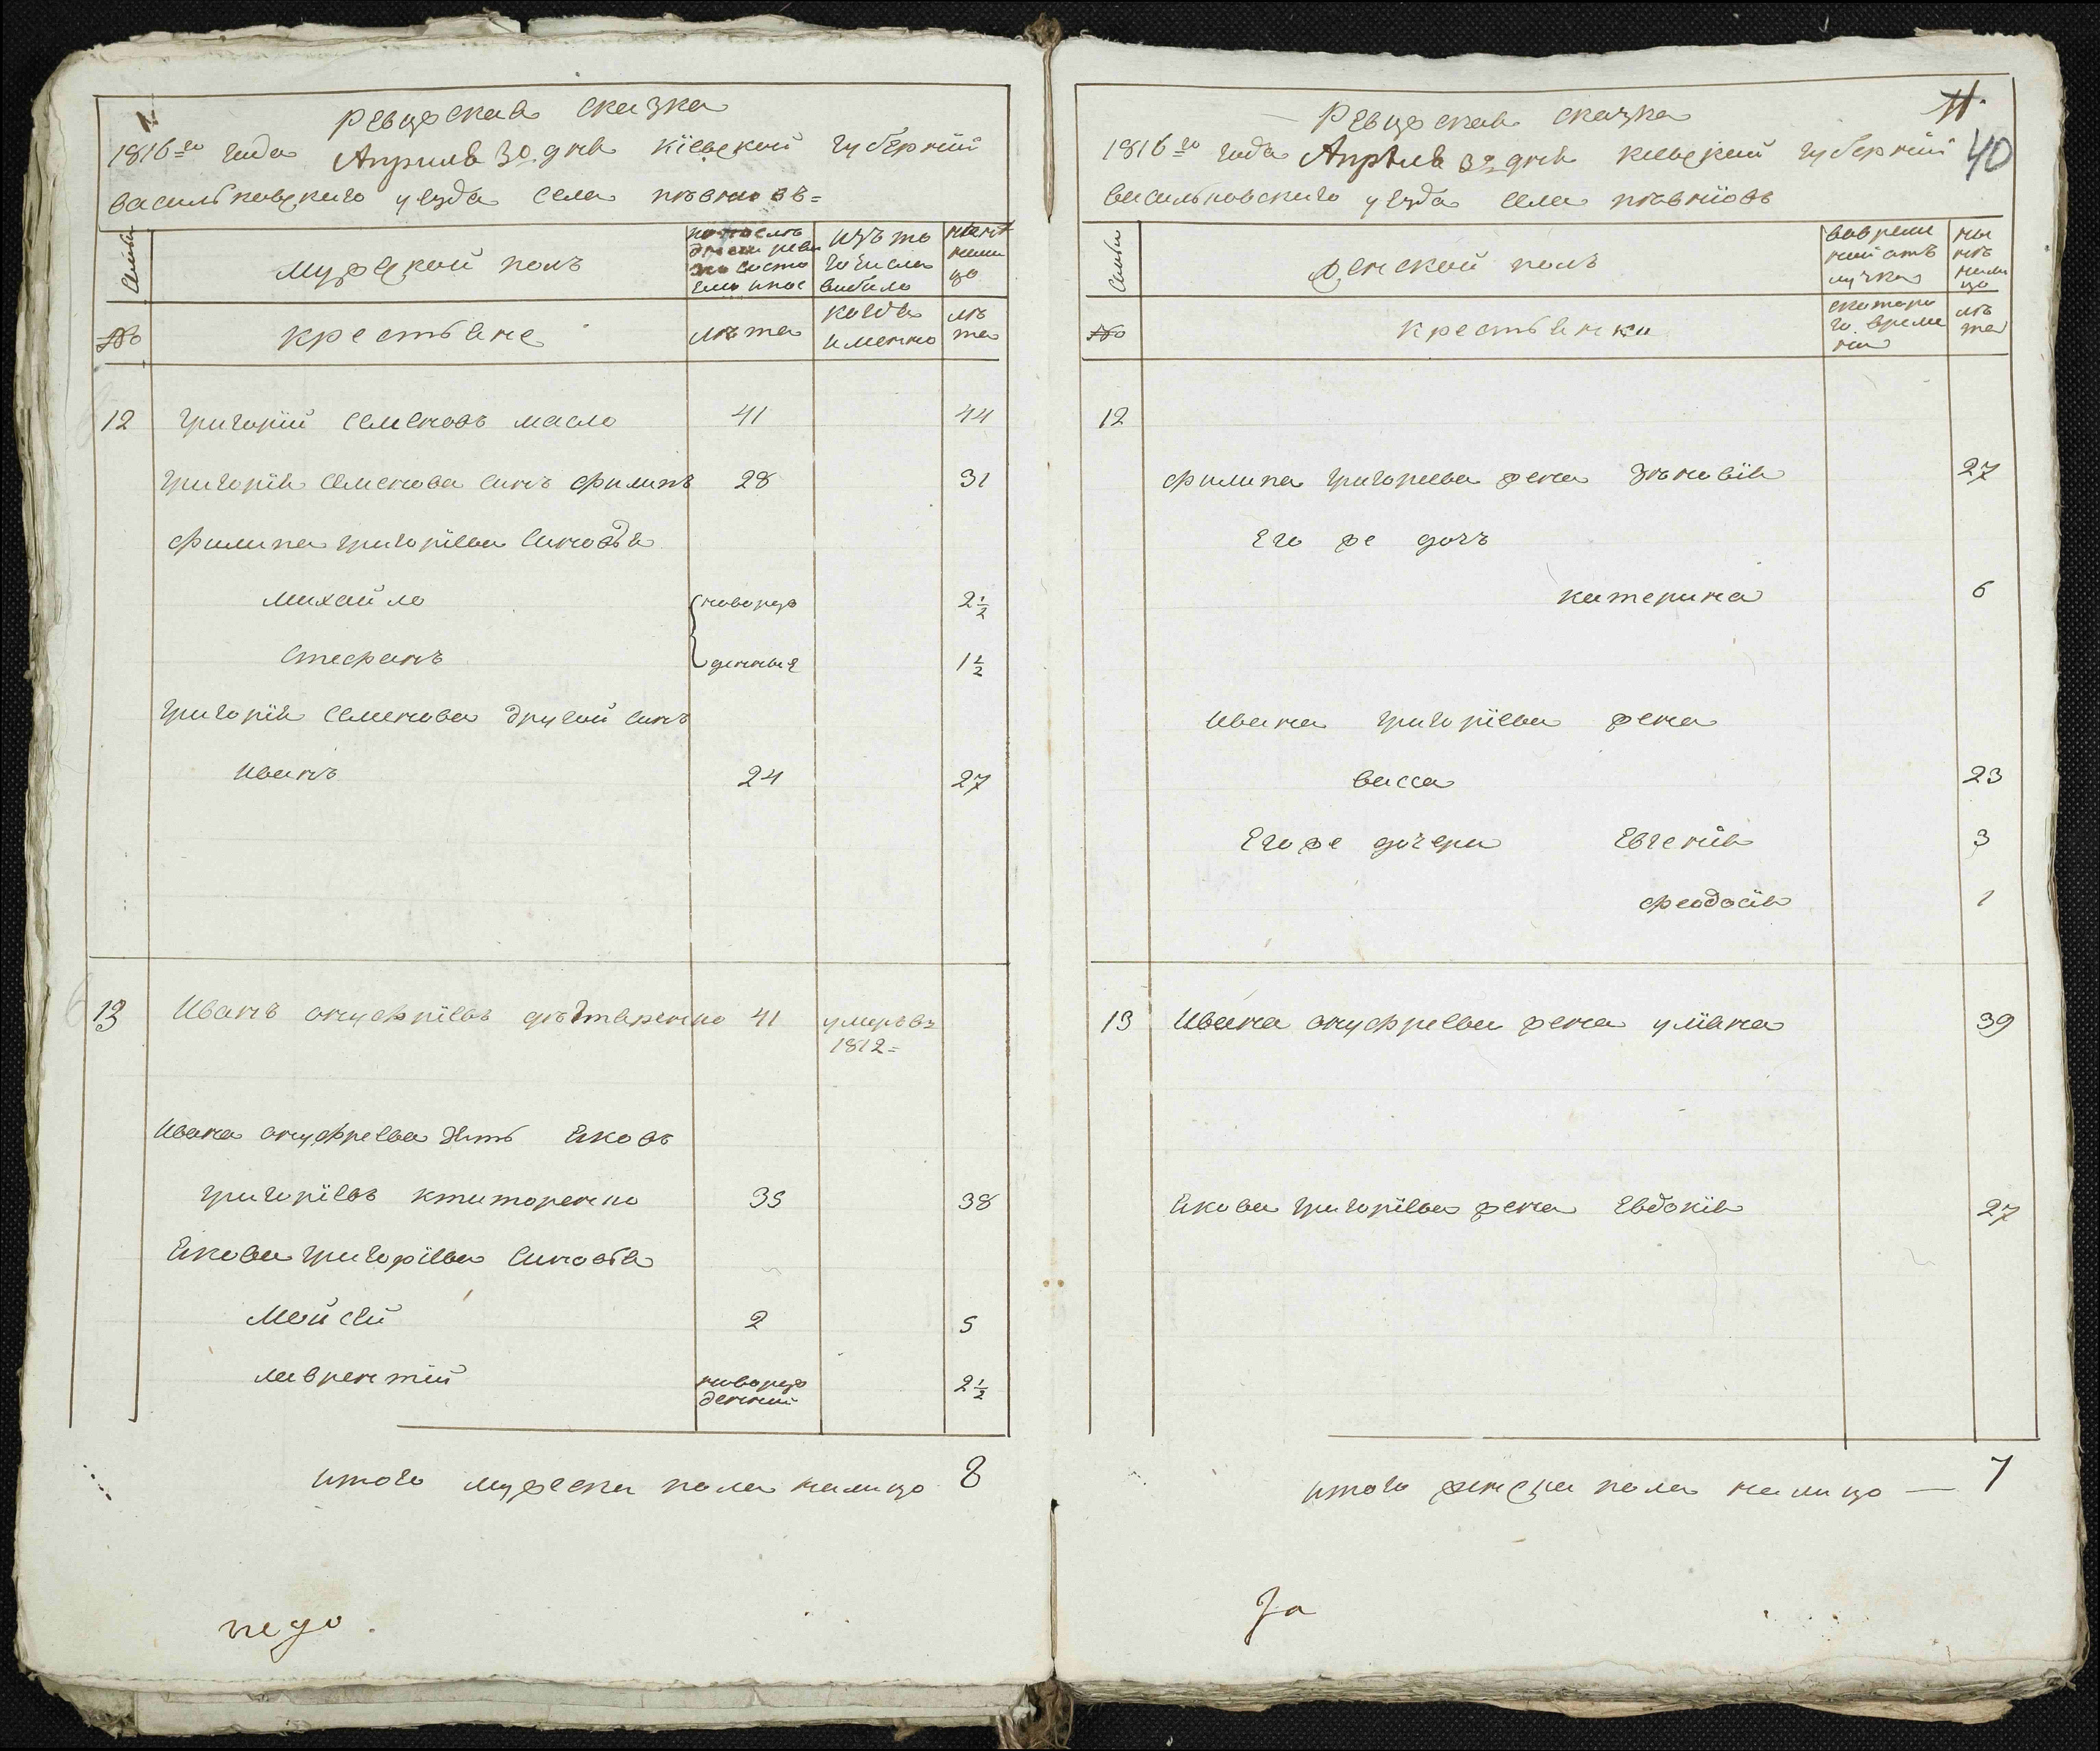 Ревизская сказка
1816=го года Априля 30. дня Кіевской губерніи
васильковского уезда села пѣвновъ=
Семьи
Мужеской полъ
по последней ревизіи состояло и после
изъ того числа выбило
ныне налицо
№
крестьяне
лѣта
когда именно
лѣта
12 григорій семеновъ масло 41 44
григорія семенова синъ филипъ 28 31
филипа григоріева синовья
михайло новорож 2½
стефанъ денныя 1½
григорія семенова другой синъ
иванъ 24 27
13 Иванъ онуфріевъ дѣхтяренко 41 умеръ въ
1812=
ивана онуфрева зять яковъ
григоріевъ ктиторенко 35 38
якова григоріева синовья
Мойсей 2 5
лаврентій новорож
денний 2½
итого мужеска пола налицо 8
11.
40
Ревизская сказка
1816=го года Апрѣля 30 дня кіевской губерніи
васильковского уезда села пѣвніовъ
Семьи
Женской полъ
во временной отлучке
ныне налицо
№
крестьянки
с которого времени
лѣта
12
филипа григорьева жена зѣновія 27
Его же дочь
катерина 6
ивана григоріева жена
васса 23
Его же дочери Евгенія 3
феодосія 1
13 Ивана онуфрева жена уліяна 39
якова григоріева жена Евдокія 27
итого женска пола налицо — 7
За